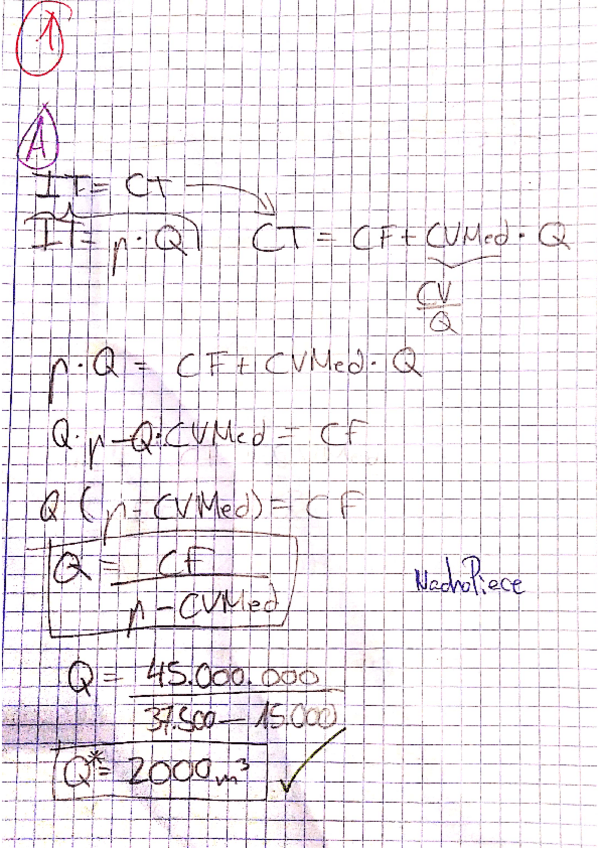 1
A
IT = CT
IT = p · Q CT = CF + CVMed · Q
CV
Q
p · Q = CF + CVMed · Q
Q · p - Q · CVMed = CF
Q (p - CVMed) = CF
Q = CF
p - CVMed
NachoPiece
Q = 45.000.000
37.500 - 15.000
Q* = 2000 m³ ✓